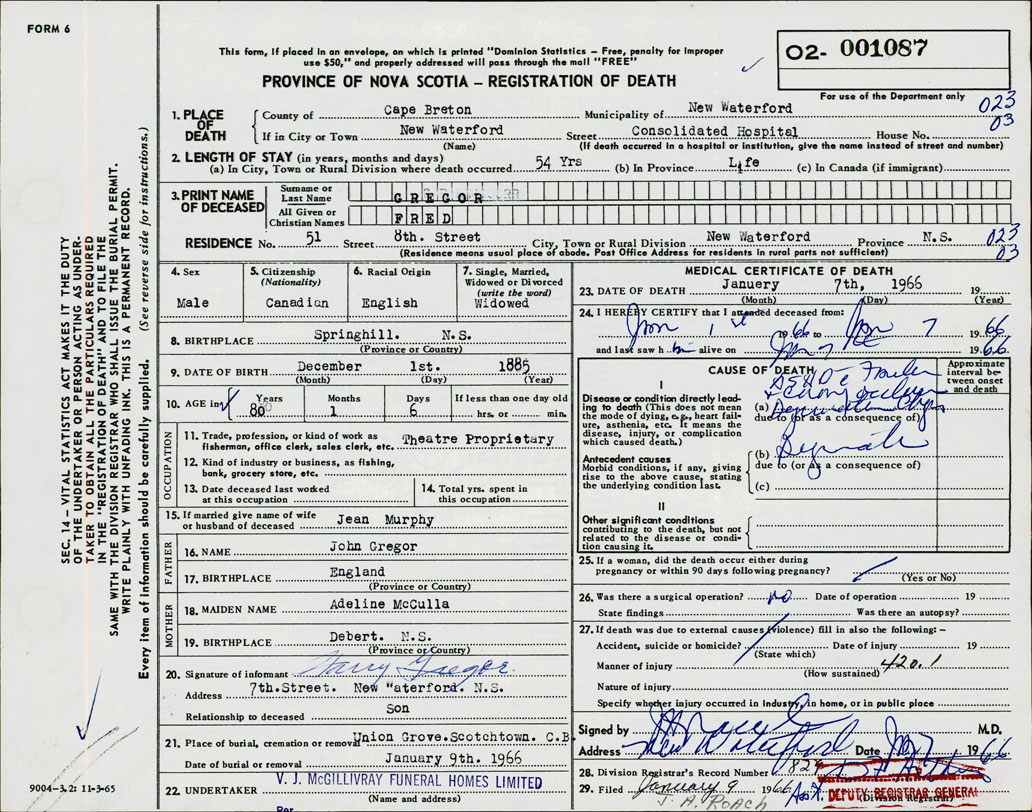 FORM 6
This form, if placed in an envelope, on which is printed "Dominion Statistics – Free, penalty for improper
use $50," and properly addressed will pass through the mail "FREE"
O2- 001087
PROVINCE OF NOVA SCOTIA – REGISTRATION OF DEATH
For use of the Department only
1. PLACE OF DEATH
County of Cape Breton Municipality of New Waterford 023
If in City or Town New Waterford Street Consolidated Hospital House No. 03
(Name) (If death occurred in a hospital or institution, give the name instead of street and number)
2. LENGTH OF STAY (in years, months and days)
(a) In City, Town or Rural Division where death occurred 54 Yrs (b) In Province Life (c) In Canada (if immigrant)
3. PRINT NAME OF DECEASED
Surname or Last Name GREGOR
All Given or Christian Names FRED
RESIDENCE No. 51 Street 8th. Street City, Town or Rural Division New Waterford Province N.S. 023
(Residence means usual place of abode. Post Office Address for residents in rural parts not sufficient) 03
4. Sex
Male
5. Citizenship
(Nationality)
Canadian
6. Racial Origin
English
7. Single, Married,
Widowed or Divorced
(write the word)
Widowed
8. BIRTHPLACE Springhill. N.S.
(Province or Country)
9. DATE OF BIRTH December 1st. 1885
(Month) (Day) (Year)
10. AGE in Years Months Days If less than one day old
80 1 6 hrs. or min.
OCCUPATION
11. Trade, profession, or kind of work as
fisherman, office clerk, sales clerk, etc. Theatre Proprietary
12. Kind of industry or business, as fishing,
bank, grocery store, etc.
13. Date deceased last worked
at this occupation
14. Total yrs. spent in
this occupation
15. If married give name of wife
or husband of deceased Jean Murphy
FATHER
16. NAME John Gregor
17. BIRTHPLACE England
(Province or Country)
MOTHER
18. MAIDEN NAME Adeline McCulla
19. BIRTHPLACE Debert. N.S.
(Province or Country)
20. Signature of informant Harry Gregor
Address 7th.Street. New "aterford. N.S.
Relationship to deceased Son
21. Place of burial, cremation or removal Union Grove.Scotchtown. C.B.
Date of burial or removal January 9th. 1966
22. UNDERTAKER V. J. McGILLIVRAY FUNERAL HOMES LIMITED
(Name and address)
Per
MEDICAL CERTIFICATE OF DEATH
23. DATE OF DEATH Januery 7th, 1966 19
(Month) (Day) (Year)
24. I HEREBY CERTIFY that I attended deceased from:
Jan 1st 1966 to Jan 7 1966
and last saw him alive on Jan 7 1966
CAUSE OF DEATH
Approximate
interval be-
tween onset
and death
I
Disease or condition directly lead-
ing to death (This does not mean
the mode of dying, e.g., heart fail-
ure, asthenia, etc. It means the
disease, injury, or complication
which caused death.)
(a)
due to (or as a consequence of)
Antecedent causes
Morbid conditions, if any, giving
rise to the above cause, stating
the underlying condition last.
(b)
due to (or as a consequence of)
(c)
II
Other significant conditions
contributing to the death, but not
related to the disease or condi-
tion causing it.
25. If a woman, did the death occur either during
pregnancy or within 90 days following pregnancy?
(Yes or No)
26. Was there a surgical operation? no Date of operation 19
State findings Was there an autopsy?
27. If death was due to external causes (violence) fill in also the following: –
Accident, suicide or homicide? Date of injury 19
(State which)
Manner of injury 420.1
(How sustained)
Nature of injury
Specify whether injury occurred in industry, in home, or in public place
Signed by M.D.
Address New Waterford Date Jan 7 1966
28. Division Registrar's Record Number 829
29. Filed January 9 1966
DEPUTY REGISTRAR GENERAL
(Division Registrar)
J. A. ROACH
SEC. 14 – VITAL STATISTICS ACT MAKES IT THE DUTY
OF THE UNDERTAKER OR PERSON ACTING AS UNDER-
TAKER TO OBTAIN ALL THE PARTICULARS REQUIRED
IN THE "REGISTRATION OF DEATH" AND TO FILE THE
SAME WITH THE DIVISION REGISTRAR WHO SHALL ISSUE THE BURIAL PERMIT.
WRITE PLAINLY WITH UNFADING INK. THIS IS A PERMANENT RECORD.
Every item of information should be carefully supplied. (See reverse side for instructions.)
9004-3.2: 11-3-65